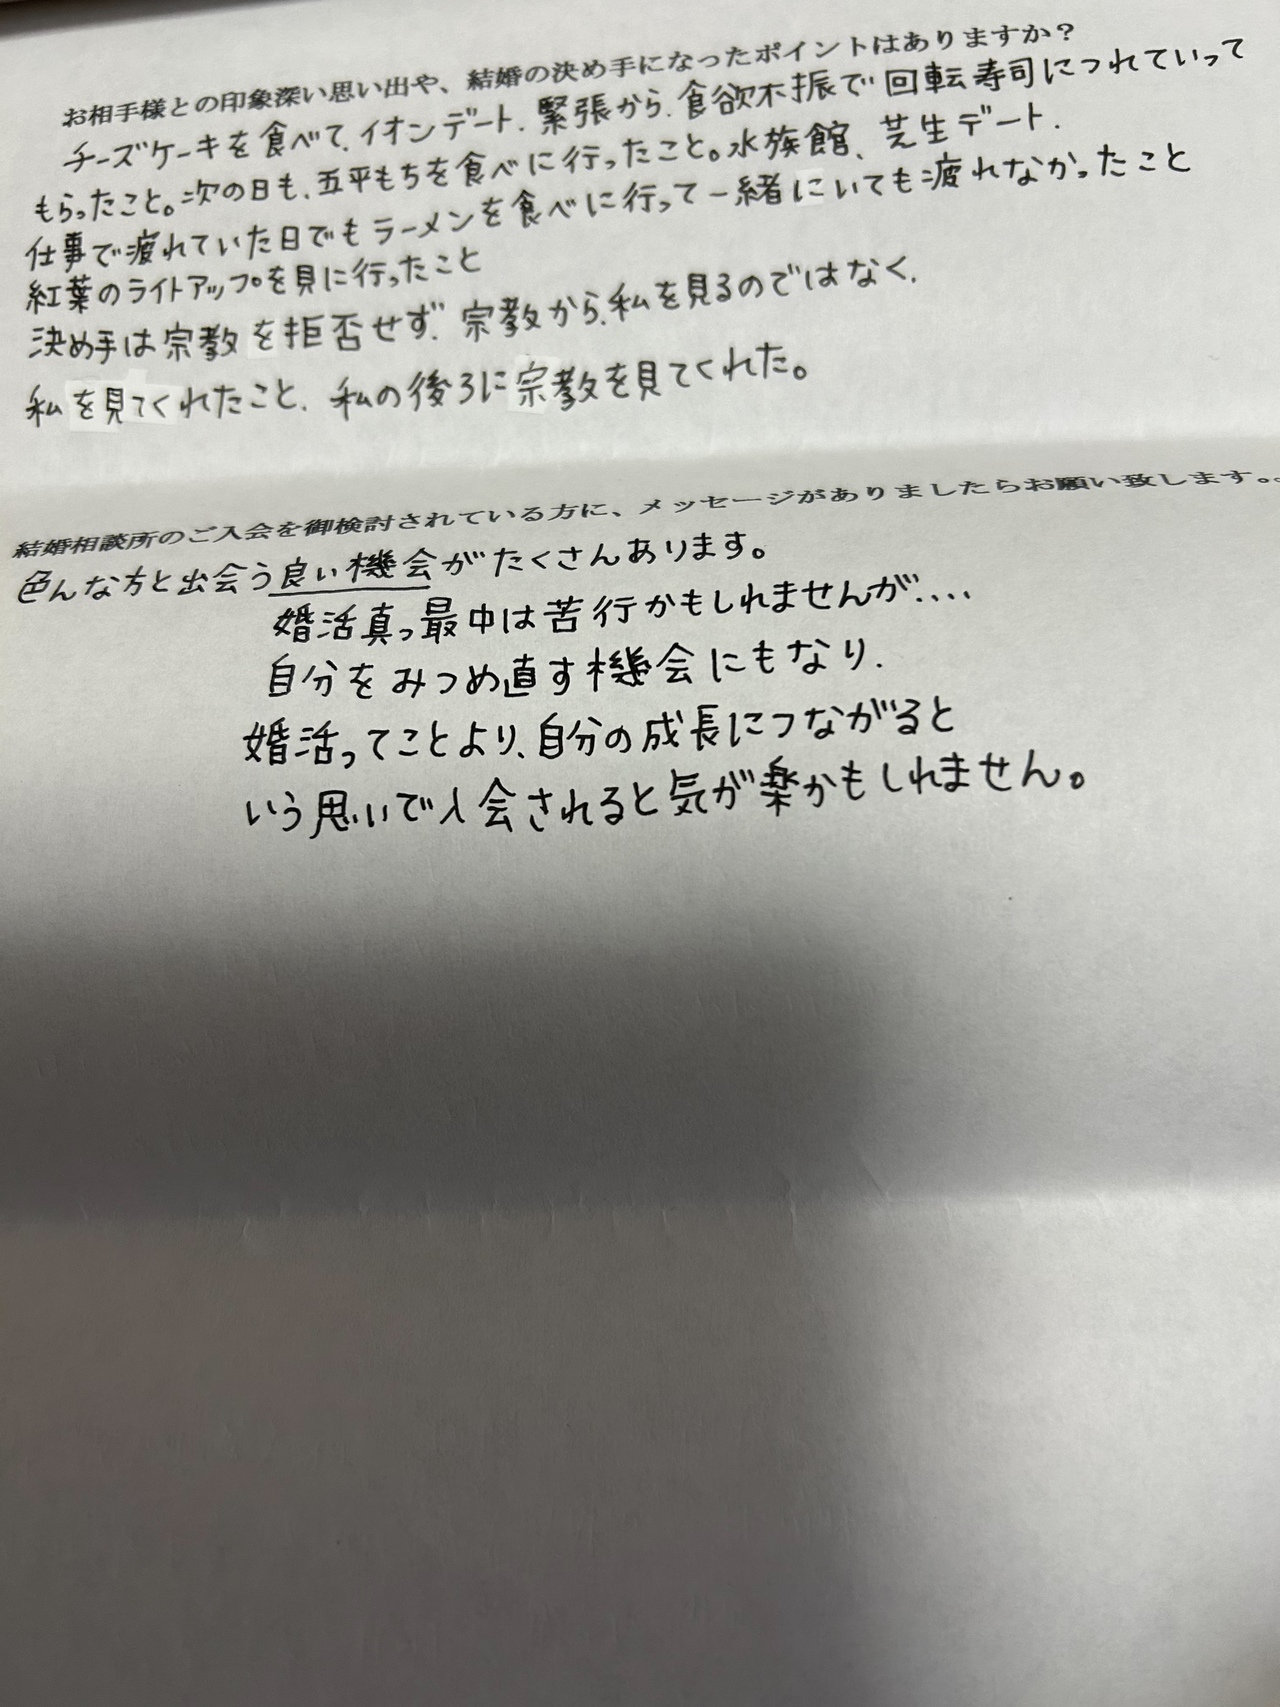 お相手様との印象深い思い出や、結婚の決め手になったポイントはありますか？
チーズケーキを食べて、イオンデート、緊張から、食欲不振で回転寿司につれていって
もらったこと。次の日も、五平もちを食べに行ったこと。水族館、芝生デート、
仕事で疲れていた日でもラーメンを食べに行って一緒にいても疲れなかったこと
紅葉のライトアップを見に行ったこと
決め手は宗教を拒否せず、宗教から、私を見るのではなく、
私を見てくれたこと、私の後ろに宗教を見てくれた。
結婚相談所のご入会を御検討されている方に、メッセージがありましたらお願い致します。。
色んな方と出会う良い機会がたくさんあります。
婚活真っ最中は苦行かもしれませんが....
自分をみつめ直す機会にもなり、
婚活ってことより、自分の成長につながると
いう思いで入会されると気が楽かもしれません。